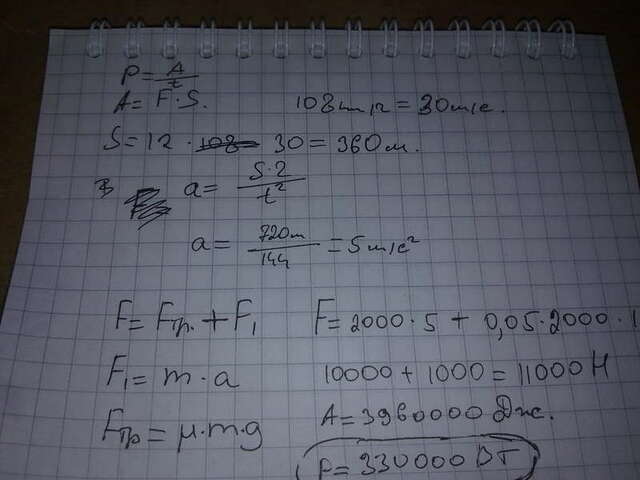 P = A/t
A = F·S.   108 км/ч = 30 м/с.
S = 12 · 30 = 360 м.
a = S·2/t²
a = 720m/144 = 5 м/с²
F = Fтр. + F₁   F = 2000·5 + 0,05·2000·1
F₁ = m·a   10000 + 1000 = 11000 Н
A = 3960000 Дж.
Fтр = μ·m·g
P = 330000 ВТ